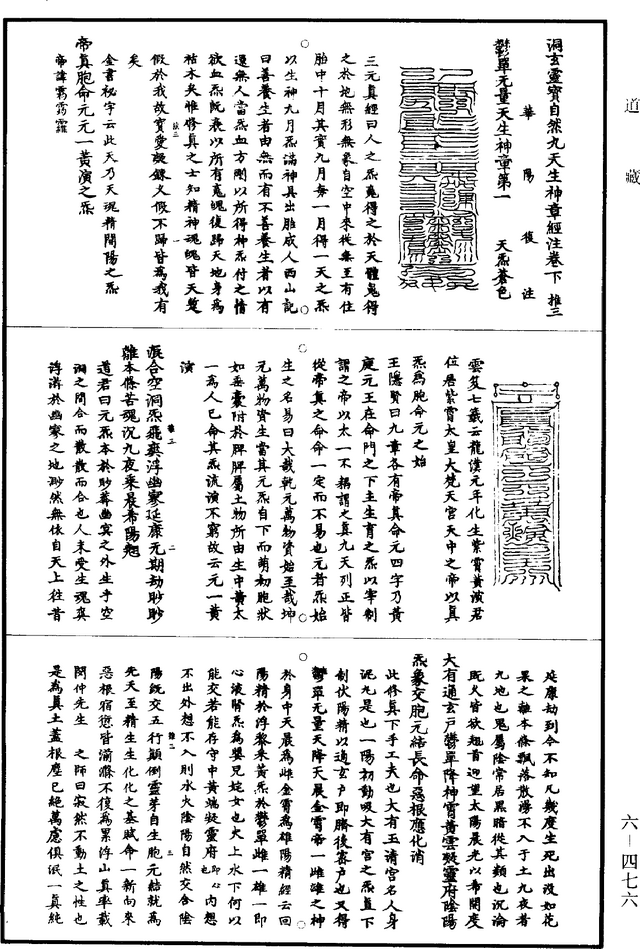 道藏
洞玄靈寶自然九天生神章經注卷下 推三
華陽復注
鬱單无量天生神章第一 天炁蒼色
三元真經曰人之炁魂得之於天體魄得
之於地無形無象自空中來從無至有住
胎中十月其實九月每一月得一天之炁
以生神九月炁滿神具出胎成人西山記
曰善養生者由無而有不善養生者以有
還無人當炁血方剛以所得神炁付之情
欲血炁既衰以所有魂魄復歸天地身為
枯木矣惟修真之士知精神魂魄皆天奘
假於我故寶愛凝鍊久假不歸皆為我有
矣
金書秘字云此天乃天魂精開陽之炁
帝真胞命元元一黃演之炁
帝諱
雲笈七籤云龍漢元年化生紫霄黃演君
位居紫霄太皇大梵天宮天中之帝以真
炁為胞命元之始
王隱賢曰九章各有帝真命元四字乃黃
庭元王在命門之下主生育之炁以宰制
謂之帝以太一不耦謂之真九天列正皆
從帝真之命命一定而不易也元者炁始
生之名易曰大哉乾元萬物資始至哉坤
元萬物資生當其元炁自下而萌初胞狀
如垂囊附於脾脾屬土物所由生中黃太
一為人已命其炁流演不窮故云元一黃
演
混合空洞炁飛爽浮幽寥延康元期劫眇眇
離本條苦魂沉九夜乘晨希陽翹
道君曰元炁本於眇莽幽冥之外生乎空
洞之間合而散散而合也人未受生魂爽
浮游於幽寥之地眇然無依自天上往昔
延康劫到今不知凡幾度生死出沒如花
果之離本條飄落散漫不入于土九夜者
九地也鬼屬陰常居黑暗從其類也沉淪
既久皆欲翹首迎望太陽晨光以希開度
大有通玄戶鬱單降神霄黃雲凝靈府陰陽
炁象交胞元結長命惡根應化消
此修真下手工夫也大有玉清宮名人身
泥丸是也一陽初動吸大有宮之炁直下
制伏陽精以通玄戶即臍後密戶也又得
鬱單无量天降天晨金霄帝一雌雄之神
於身中天晨為雌金霄為雄陽精經云回
陽精於浮黎朱黃炁於鬱單雌一雄一即
心液腎炁為嬰兒姹女也火上水下何以
能交若能存守中黃端凝靈府即心也內想
不出外想不入則水火陰陽自然交合陰
陽既交五行顛倒靈芽自生胞元結就為
先天至精生生化化之基賦命一新向來
惡根宿愆皆湔滌不復為累浮山真率載
問仲先生之師曰寂然不動土之性也
是為真土蓋根塵已絕萬慮俱泯一真純
六－四七六